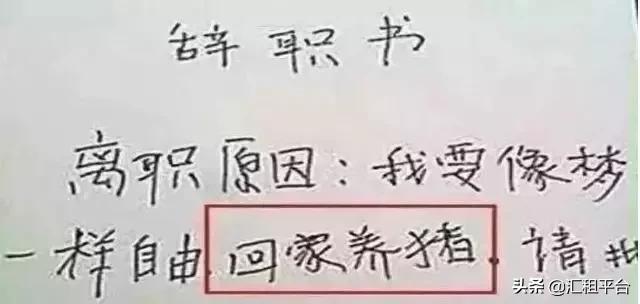 辞职书
离职原因：我要像梦
一样自由.回家养猪.请
头条 @汇租平台